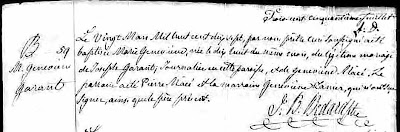 Trois cent cinquantième feuillet
J. B.
B 59
M. Genevieve
Garant
Le vingt Mars Mil huit cent dix sept, par nous prêtre curé soussigné a été
baptisée Marie Genevieve, née le dix huit du même mois, du légitime mariage
de Joseph Garant, Journalier en cette paroisse, et de Genevieve Macé. Le
parrain a été Pierre Macé et la marraine Genevieve qui n'ont su
signer, ainsi que le père présent.
J. B. Bedard Ptre